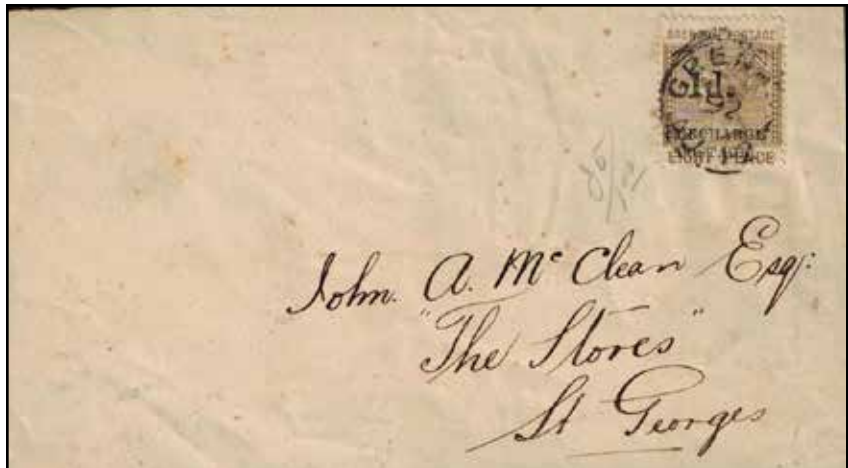 GRENADA POSTAGE
1d.
SURCHARGE
EIGHT PENCE
John. A. Mc Clean Esq:
"The Stores"
St Georges